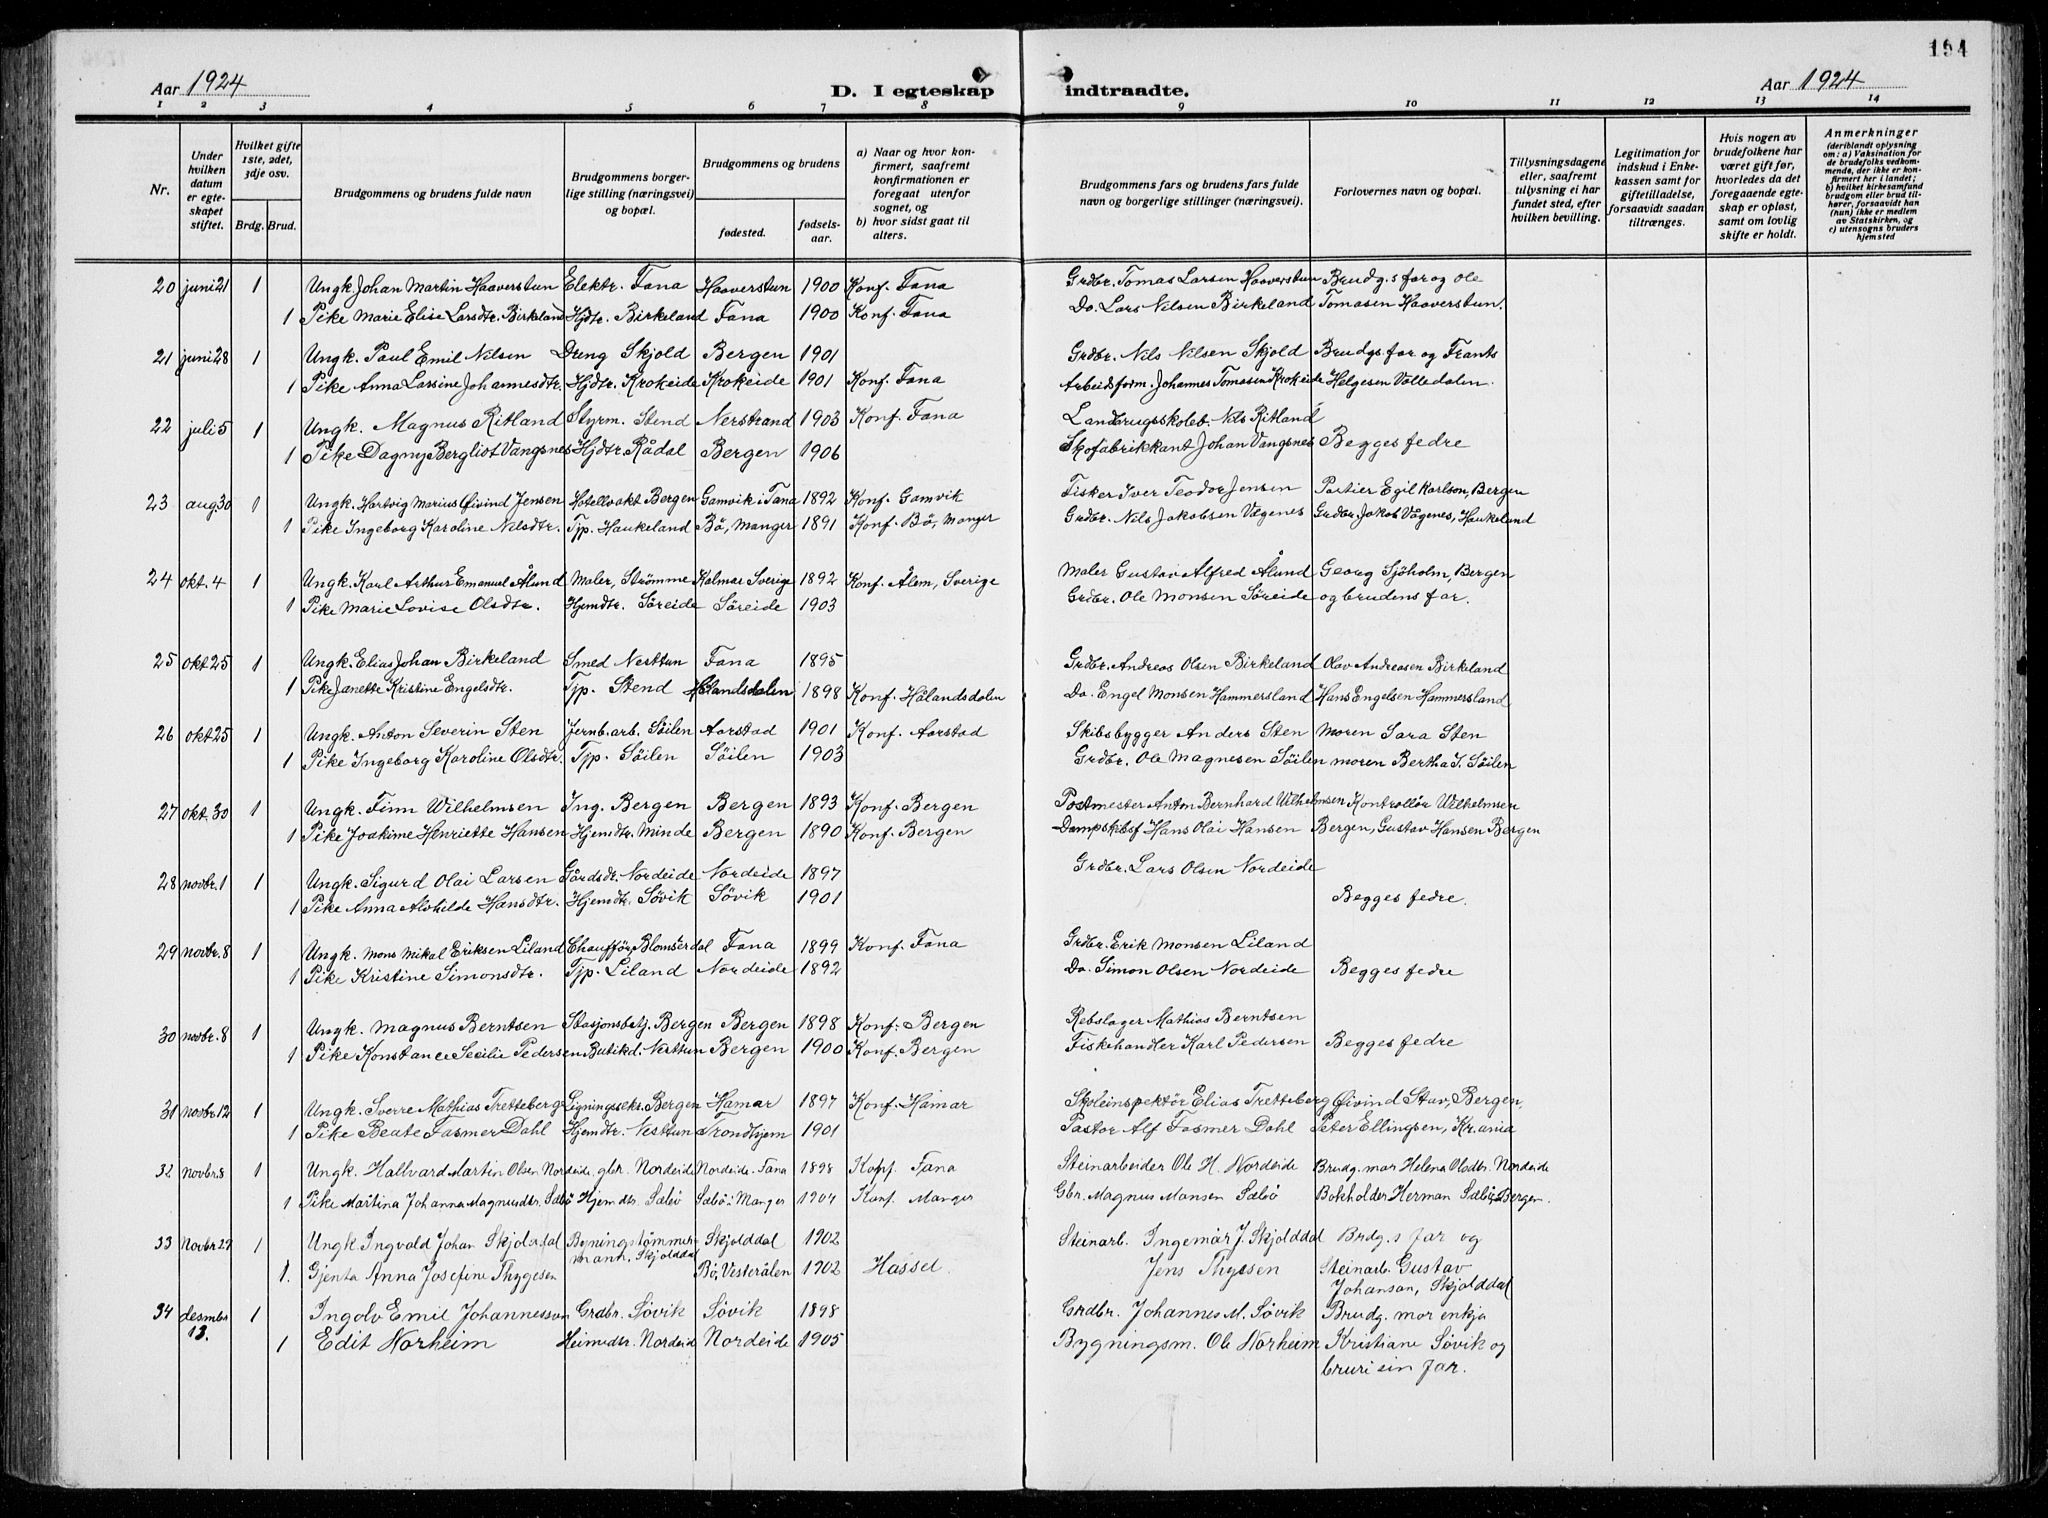 194
Aar 1924 D. I egteskap indtraadte. Aar 1924
1 2 3 4 5 6 7 8 9 10 11 12 13 14
Nr.
Under hvilken datum er egteskapet stiftet.
Hvilket gifte 1ste, 2det, 3dje osv.
Brdg. Brud.
Brudgommens og brudens fulde navn
Brudgommens borgerlige stilling (næringsvei) og bopæl.
Brudgommens og brudens
fødested.
fødselsaar.
a) Naar og hvor konfirmert, saafremt konfirmationen er foregaat utenfor sognet, og
b) hvor sidst gaat til alters.
Brudgommens fars og brudens fars fulde navn og borgerlige stillinger (næringsvei).
Forlovernes navn og bopæl.
Tillysningsdagene eller, saafremt tillysning ei har fundet sted, efter hvilken bevilling.
Legitimation for indskud i Enkekassen samt for giftetilladelse, forsaavidt saadan tiltrænges.
Hvis nogen av brudefolkene har været gift før, hvorledes da det foregaaende egteskap er opløst, samt om lovlig skifte er holdt.
Anmerkninger (deriblandt oplysning om: a) Vaksination for de brudefolks vedkommende, der ikke er konfirmert her i landet; b) hvilket kirkesamfund brudgom eller brud tilhører, forsaavidt han (hun) ikke er medlem av Statskirken, og c) utensogns bruders hjemsted
20 juni 21 1 Ungk. Johan Martin Haaverstun Elektr. Fana Haaverstun 1900 Konf. Fana Grdbr. Tomas Larsen Haaverstun Brudg.s far og Ole
1 Pike Marie Elise Larsdtr. Birkeland Hjdtr. Birkeland Fana 1900 Konf. Fana Do. Lars Nilsen Birkeland Tomasen Haaverstun.
21 juni 28 1 Ungk. Paul Emil Nilsen Dreng Skjold Bergen 1901 Grdbr. Nils Nilsen Skjold Brudgs far og Frants
1 Pike Anna Larsine Johannesdtr. Hjdtr. Krokeide Krokeide 1901 Konf. Fana Arbeidsform. Johannes Tomasen Krokeide Helgesen Valledalen.
22 juli 5 1 Ungk. Magnus Ritland Styrm. Stend Nerstrand 1903 Konf. Fana Landbrugsskoleb. Nils Ritland
1 Pike Dagny Bergliot Vangsnes Hjdtr. Rådal Bergen 1906 Skofabrikkant Johan Vangsnes Begges fedre
23 aug. 30 1 Ungk. Hartvig Marius Øivind Jensen Hotellvakt Bergen Gamvik i Tana 1892 Konf. Gamvik Fisker Iver Teodor Jensen Portier Egil Karlson, Bergen
1 Pike Ingeborg Karoline Nilsdtr. Tjp. Haukeland Bø, Manger 1891 Konf. Bø, Manger Grdbr. Nils Jakobsen Vågenes Grdbr. Jakob Vågenes, Haukeland
24 okt. 4 1 Ungk. Karl Arthur Emanuel Ålund Maler, Strømme Kalmar Sverige 1892 Konf. Ålem, Sverige Maler Gustav Alfred Ålund Georg Sjöholm, Bergen
1 Pike Marie Lovise Olsdtr. Hjemdtr. Søreide Søreide 1903 Grdbr. Ole Monsen Søreide og brudens far.
25 okt. 25 1 Ungk. Elias Johan Birkeland Smed Nesttun Fana 1895 Grdbr. Andreas Olsen Birkeland Olav Andreasen Birkeland
1 Pike Janette Kristine Engelsdtr. Tjp. Stend Hålandsdalen 1898 Konf. Hålandsdalen Do. Engel Monsen Hammersland Hans Engelsen Hammersland
26 okt. 25 1 Ungk. Anton Severin Sten Jernb. arb. Søilen Aarstad 1901 Konf. Aarstad Skibsbygger Anders Sten moren Sara Sten
1 Pike Ingeborg Karoline Olsdtr. Tjp. Søilen Søilen 1903 Grdbr. Ole Magnesen Søilen moren Bertha I. Søilen
27 okt. 30 1 Ungk. Finn Wilhelmsen Ing. Bergen Bergen 1893 Konf. Bergen Postmester Anton Bernhard Wilhelmsen Kontrollør Wilhelmsen
1 Pike Joakime Henriette Hansen Hjemdtr. Minde Bergen 1890 Konf. Bergen Dampskibsf Hans Olai Hansen Bergen, Gustav Hansen Bergen
28 novbr. 1 1 Ungk. Sigurd Olai Larsen Gårdsdr. Nordeide Nordeide 1897 Grdbr. Lars Olsen Nordeide
1 Pike Anna Alvhilde Hansdtr. Hjemdtr. Søvik Søvik 1901 Begges fedre.
29 novbr. 8 1 Ungk. Mons Mikal Eriksen Liland Chauffør, Blomsterdal Fana 1899 Konf. Fana Grdbr. Erik Monsen Liland
1 Pike Kristine Simonsdtr. Tjp. Liland Nordeide 1892 Do. Simon Olsen Nordeide Begges fedre
30 novbr. 8 1 Ungk. Magnus Berntsen Stasjonsbetj. Bergen Bergen 1898 Konf. Bergen Rebslager Mathias Berntsen
1 Pike Konstance Secilie Pedersen Butikd. Nesttun Bergen 1900 Konf. Bergen Fiskehandler Karl Pedersen Begges fedre
31 novbr. 12 1 Ungk. Sverre Mathias Tretteberg Ligningssekr. Bergen Hamar 1897 Konf. Hamar Skoleinspektør Elias Tretteberg Øivind Stav, Bergen,
1 Pike Beate Fasmer Dahl Hjemdtr. Nesttun Trondhjem 1901 Pastor Alf Fasmer Dahl Peter Ellingsen, Kr.ania
32 novbr. 8 1 Ungk. Hallvard Martin Olsen Nordeide, gbr. Nordeide Nordeide. Fana 1898 Konf. Fana Steinarbeider Ole H. Nordeide Brudg. mor Helena Olsdtr. Nordeide
1 Pike Martina Johanna Magnusdtr. Sæbø Hjemdtr. Sæbø Sæbø: Manger 1904 Konf. Manger Gbr. Magnus Monsen Sæbø Bokholder Herman Sæbø, Bergen.
33 Novbr. 29 1 Ungk. Ingvald Johan Skjolddal Bygningstømmermann, Skjolddal Skjolddal 1902 Steinarb. Ingemar J. Skjolddal Brdg.s far og
1. Gjenta Anna Josefine Thygesen Bø, Vesterålen 1902 Hassel Jens Thyssen Steinarb. Gustav
Johanson, Skjolddal
34 desmbr 13. 1 Ingolv Emil Johannesson Grdbr. Søvik Søvik 1898 Grdbr. Johannes M. Søvik Brudg. mor enkja
1 Edit Norheim Heimedtr. Nordeid Nordeide 1905 Bygningsm. Ole Norheim Kristiane Søvik og
bruri sin far.